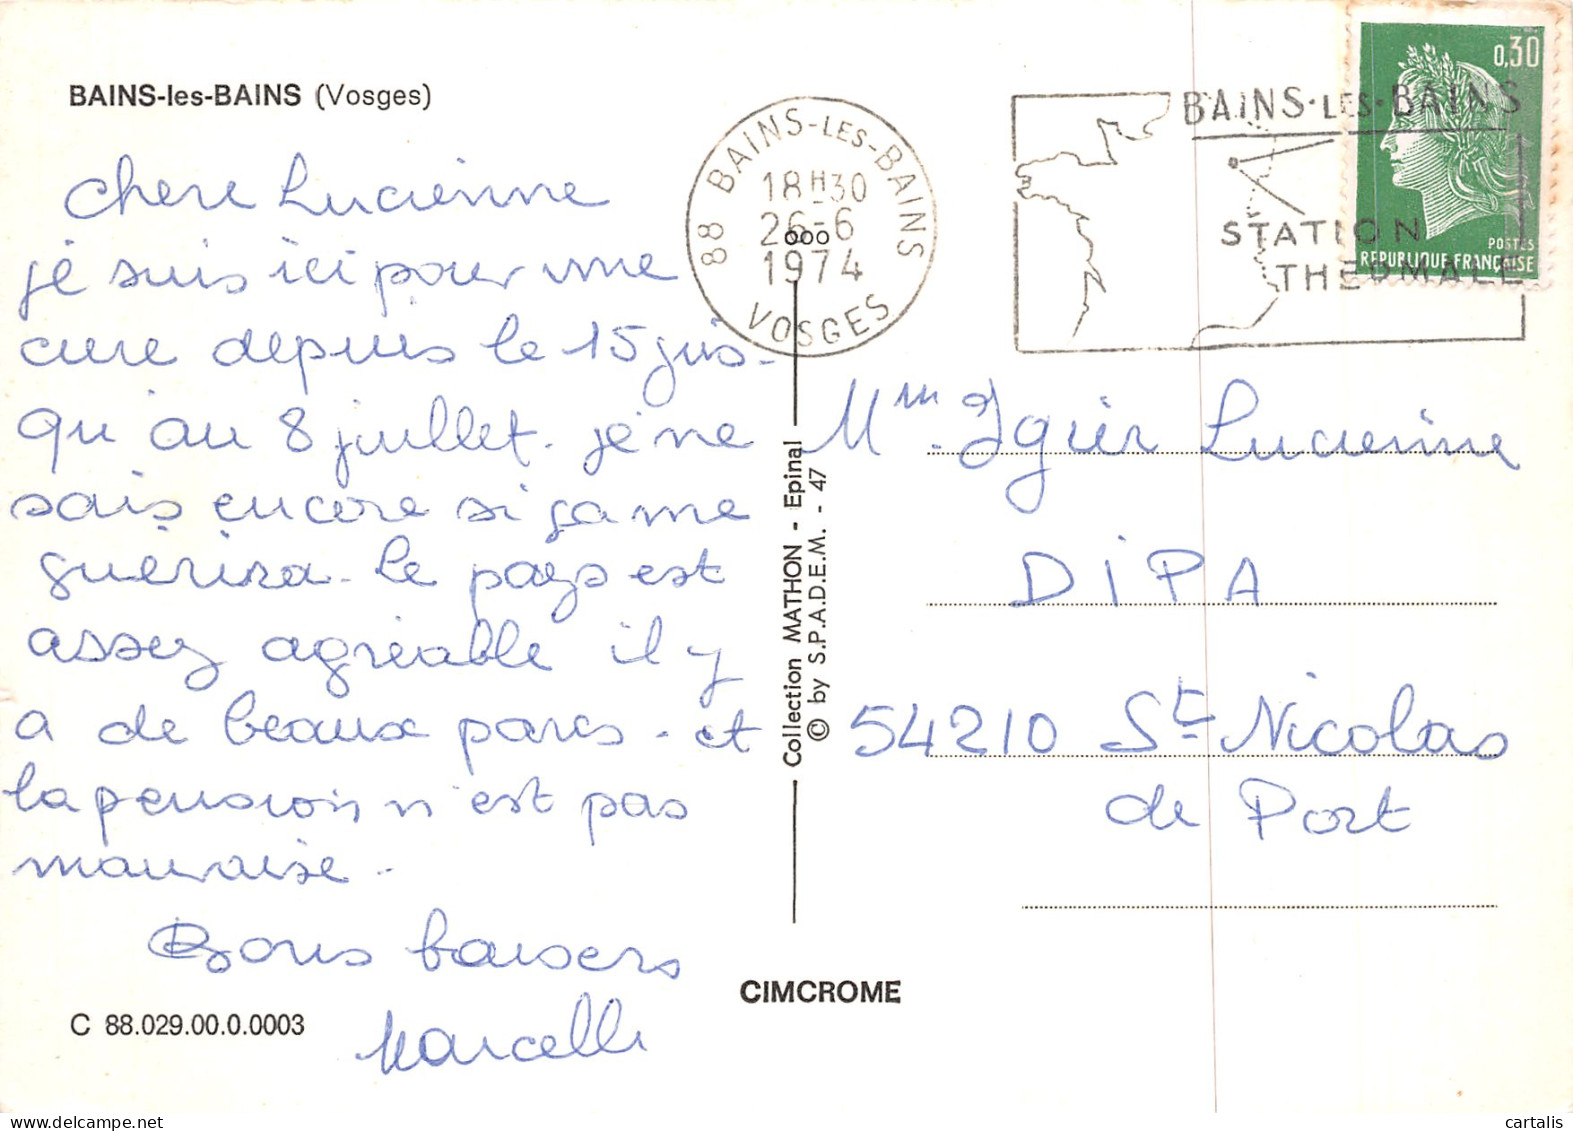 BAINS-les-BAINS (Vosges)
chere Lucienne
je suis ici pour une
cure depuis le 15 jus-
qu'au 8 juillet. je ne
sais encore si ça me
guérira. le pays est
assez agréable il y
a de beaux parcs. et
la pension n'est pas
mauvaise.
Bons baisers
Marcelle
C 88.029.00.0.0003
88 BAINS-LES-BAINS
18H30
26-6
1974
VOSGES
ooo
BAINS·LES·BAINS
STATION
THERMALE
0,30
POSTES
REPUBLIQUE FRANÇAISE
Collection MATHON - Epinal
© by S.P.A.D.E.M. - 47
Mme Igier Lucienne
DiPA
54210 St Nicolas
de Port
CIMCROME
delcampe.net
cartalis